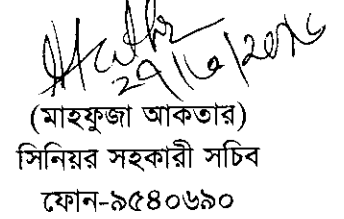 ২৭/৬/২০১৬
(মাহফুজা আকতার)
সিনিয়র সহকারী সচিব
ফোন-৯৫৪০৬৯০